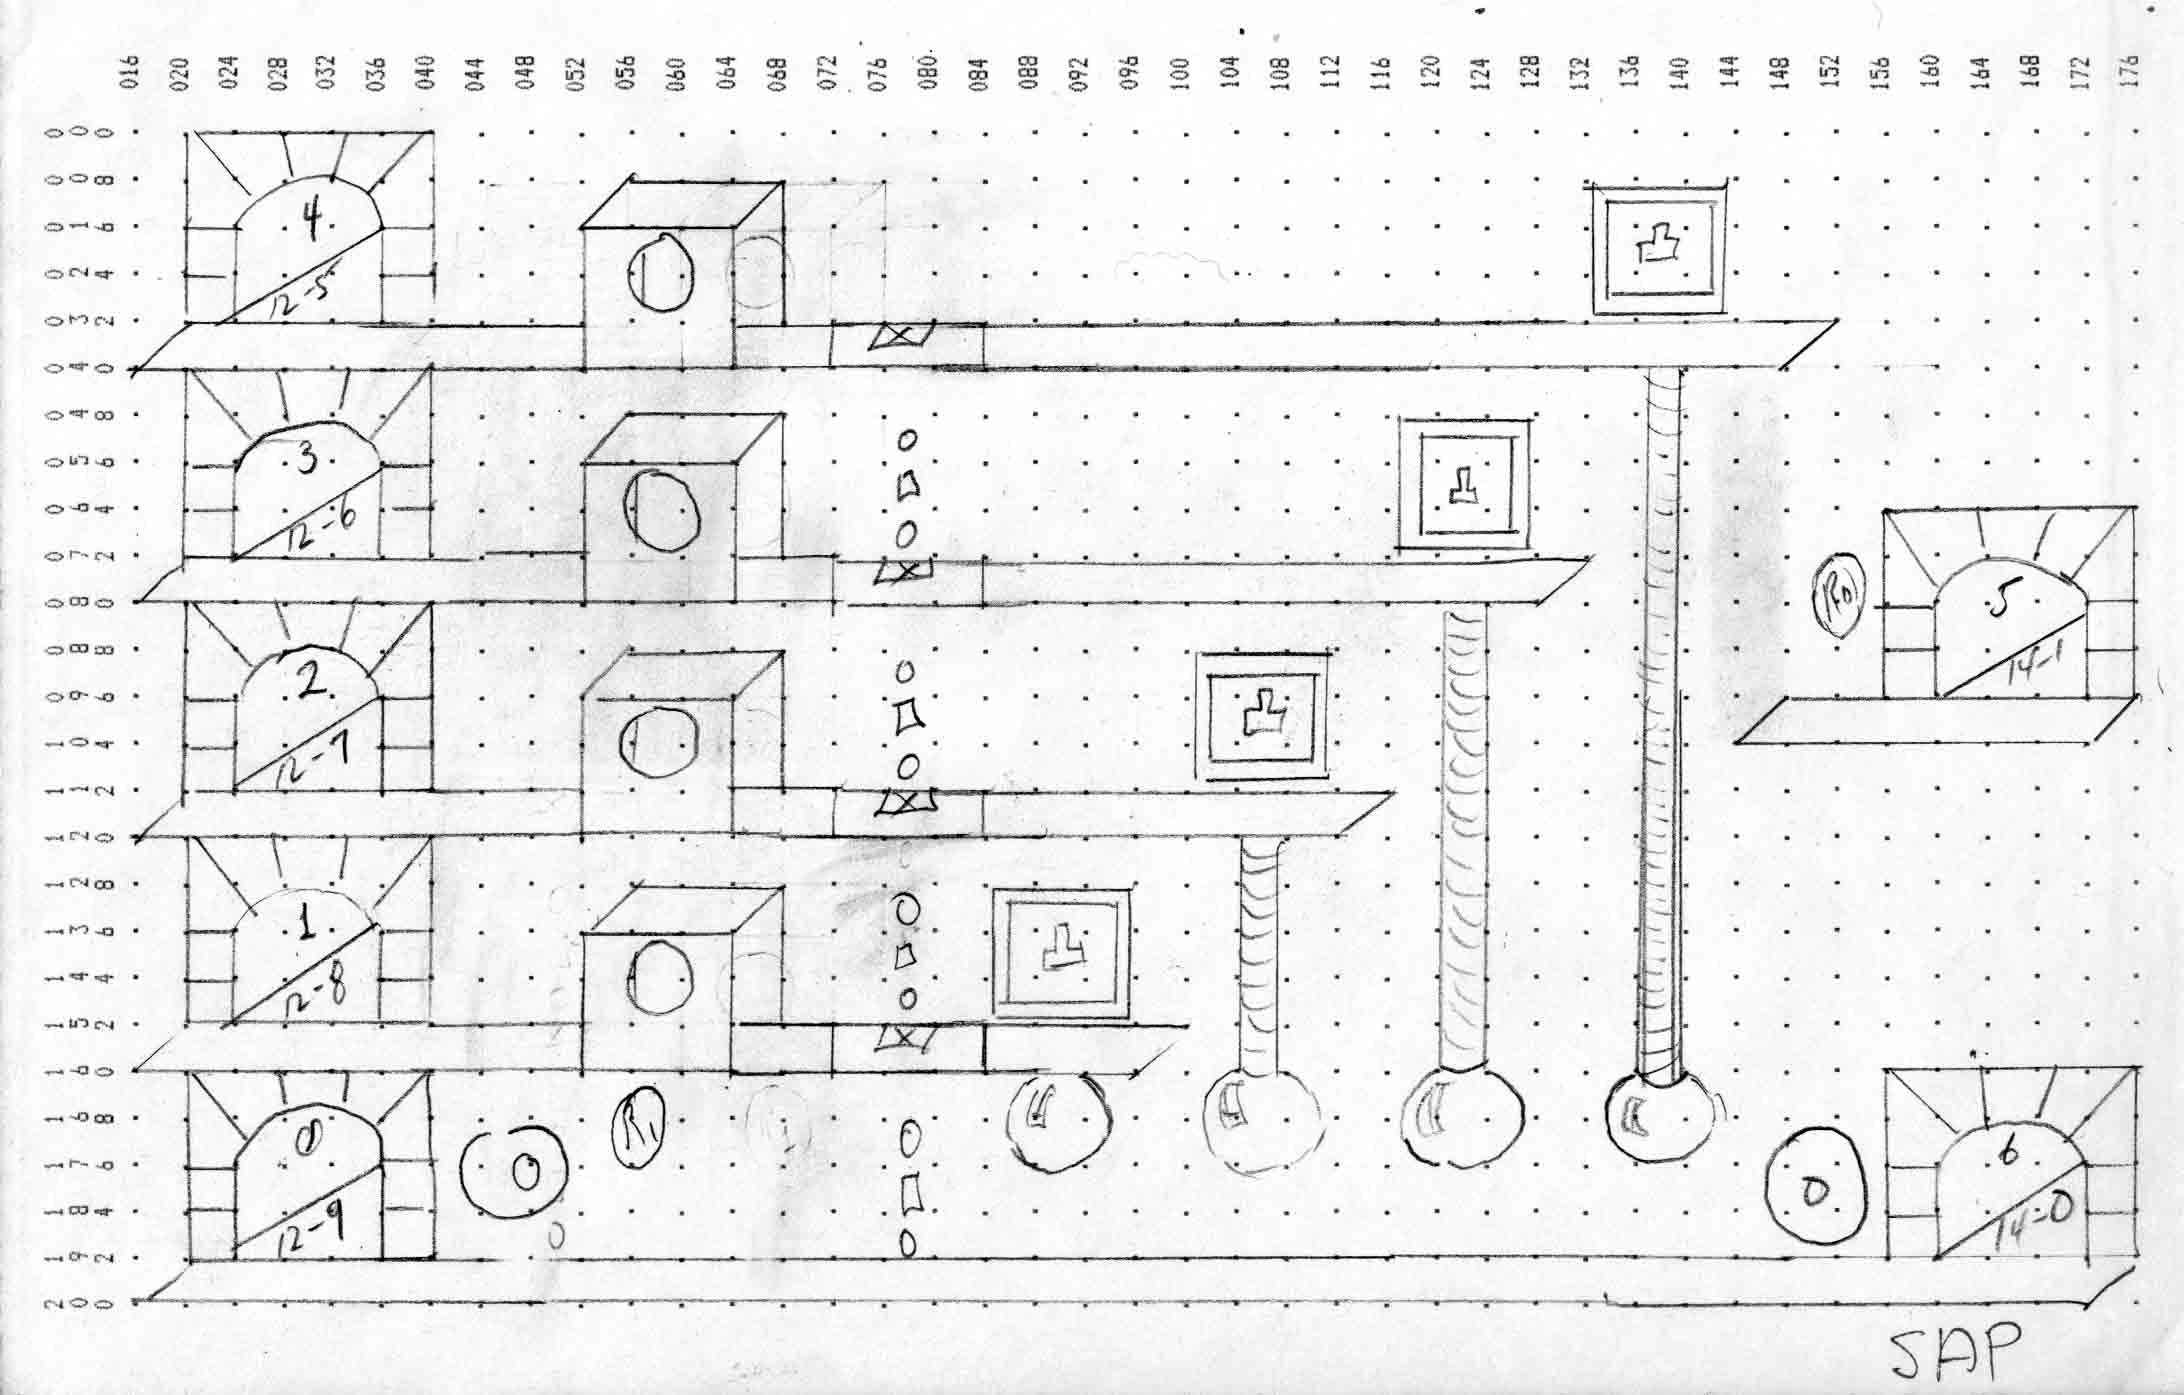 016 020 024 028 032 036 040 044 048 052 056 060 064 068 072 076 080 084 088 092 096 100 104 108 112 116 120 124 128 132 136 140 144 148 152 156 160 164 168 172 176
000
008
016
024
032
040
048
056
064
072
080
088
096
104
112
120
128
136
144
152
160
168
176
184
192
200
4
12-5
3
12-6
2
12-7
1
12-8
0
12-9
R1
R0
5
14-1
0
0
6
14-0
SAP